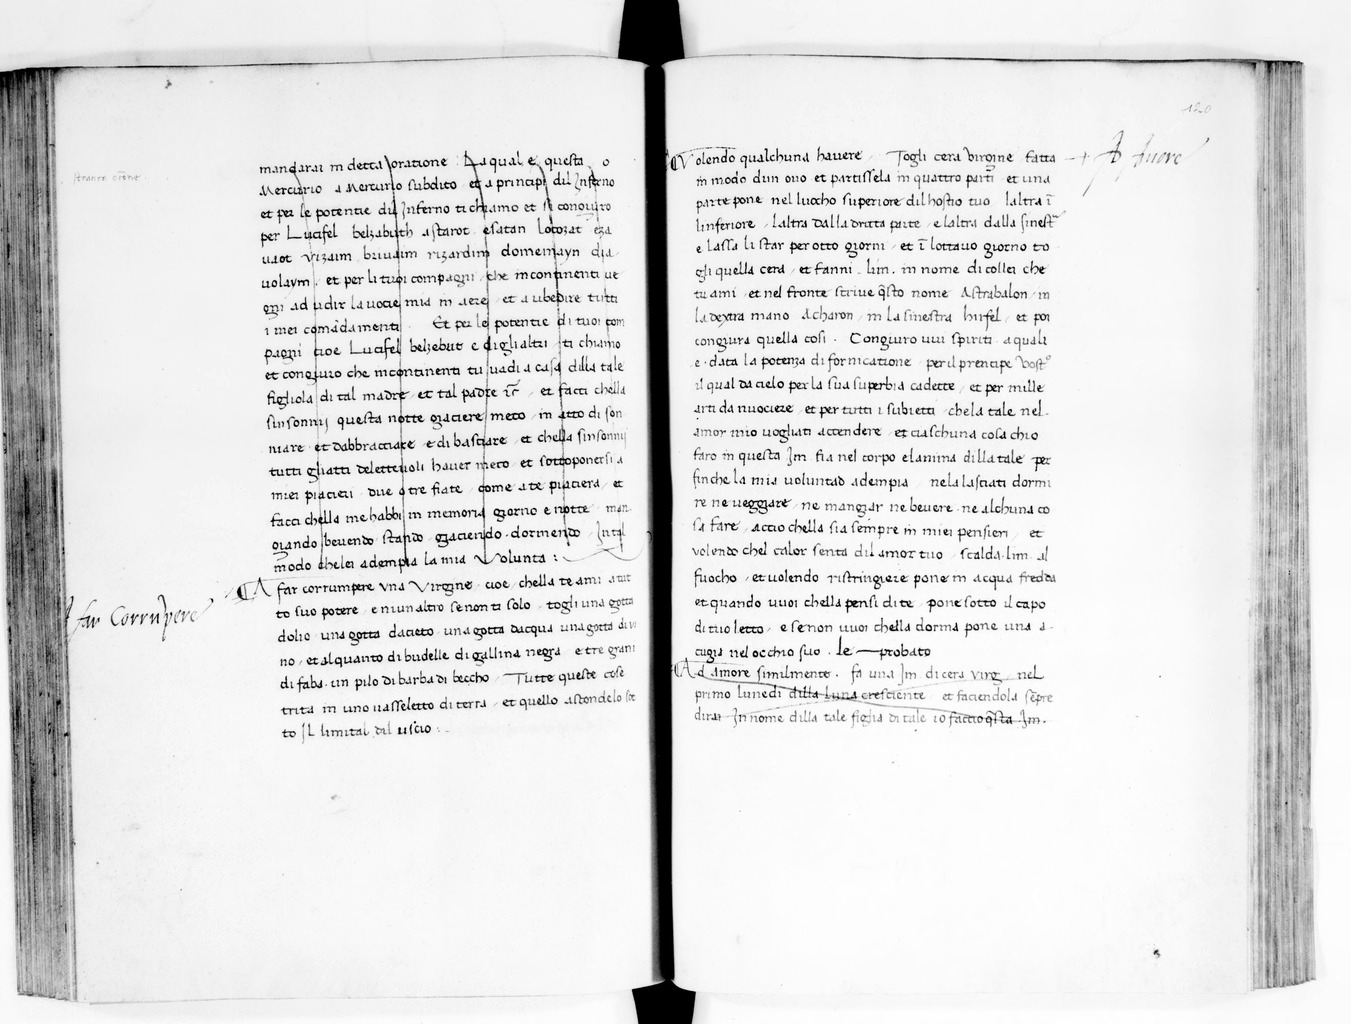 mandarai in detta oratione : La qual e questa o
Mercurio a Mercurio subdito et a principi dil Inferno
et per le potentie dil Inferno ti chiamo et si coniuro
per Lucifel belzabuth astarot esatan lotozat eza
uaot vizaim brivaim rizardim domemayn dia-
uolaym . et per li tuoi compagni che incontinenti ue
gni ad udir la uocie mia in aere et a ubedire tutti
i miei comādamenti . Et per le potentie di tuoi com
pagni cioe Lucifel belzebut e diglialtri ti chiamo
et congiuro che incontinenti tu uadi a casa dilla tale
figliola di tal madre et tal padre et facci chella
sinsonnij questa notte giaciere meco in atto di son
niare et dabbracciare e di basciare et chella sinsonnij
tutti gliatti deletteuoli hauer meco et sottoponersi a
miei piacieri due o tre fiate come a te piaciera et
facci chella me habbi in memoria giorno e notte man-
giando beuendo stando giaciendo dormendo . In tal
modo chelei adempia la mia Volunta :
A far corrumpere vna Virgine cioe chella te ami a tut
to suo potere e niun altro se non ti solo togli una gotta
dolio una gotta dacieto una gotta dacqua una gotta di vi
no et alquanto di budelle di gallina negra e tre grani
di faba . un pilo di barba di beccho Tutte queste cose
trita in uno uasseletto di terra et quello ascondelo sot
to il limital dil uscio :
A far Corrūpere
120
Volendo qualchuna hauere Togli cera virgine fatta
A Amore
in modo dun ouo et partissela in quattro parti et una
parte pone nel luocho superiore dil hostio tuo laltra ī
linferiore laltra dalla dritta parte e laltra dalla sinestra
e lassa li star per otto giorni et ī lottauo giorno to
gli quella cera et fanni . Im . in nome di collei che
tu ami et nel fronte scriue q̄sto nome Astrabalon in
la dextra mano Acharon in la sinestra hirfel et poi
congiura quella cosi . Congiuro vui spiriti a quali
e . data la potenza di fornicatione per il prencipe vostº
il qual da cielo per la sua superbia cadette et per mille
arti da nuociere et per tutti i subietti che la tale nel-
amor mio uogliati accendere et ciaschuna cosa chio
faro in questa Im fia nel corpo e lamina dilla tale per
finche la mia voluntad adempia nela lasciati dormi
re ne veggiare ne mangiar ne beuere ne alchuna co
sa fare accio chella sia sempre in miei pensieri et
volendo chel calor senta dil amor tuo scalda . lim . al
fuocho et uolendo ristringiere pone in acqua fredda
et quando vuoi chella pensi di te pone sotto il capo
di tuo letto e se non vuoi chella dorma pone una a-
cugia nel occhio suo . le probato
Ad amore similmente . fa una Im di cera virg nel
primo lunedi dilla luna cresciente et faciendola sēpre
dirai In nome dilla tale figlia di tale io faccio q̄sta Im .